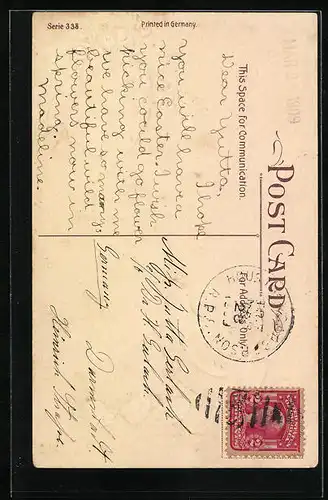 Serie 338.
Printed in Germany.
POST CARD
This Space for Communication.
For Address Only.
Dear Yutta,
I hope
you will have a
nice Easter. I wish
you could go flower
picking with me
we have so many
beautiful wild
flowers now in
spring.
Madeline.
Miss Jutta
Dr.
Darmstadt
Heinrich
Germany